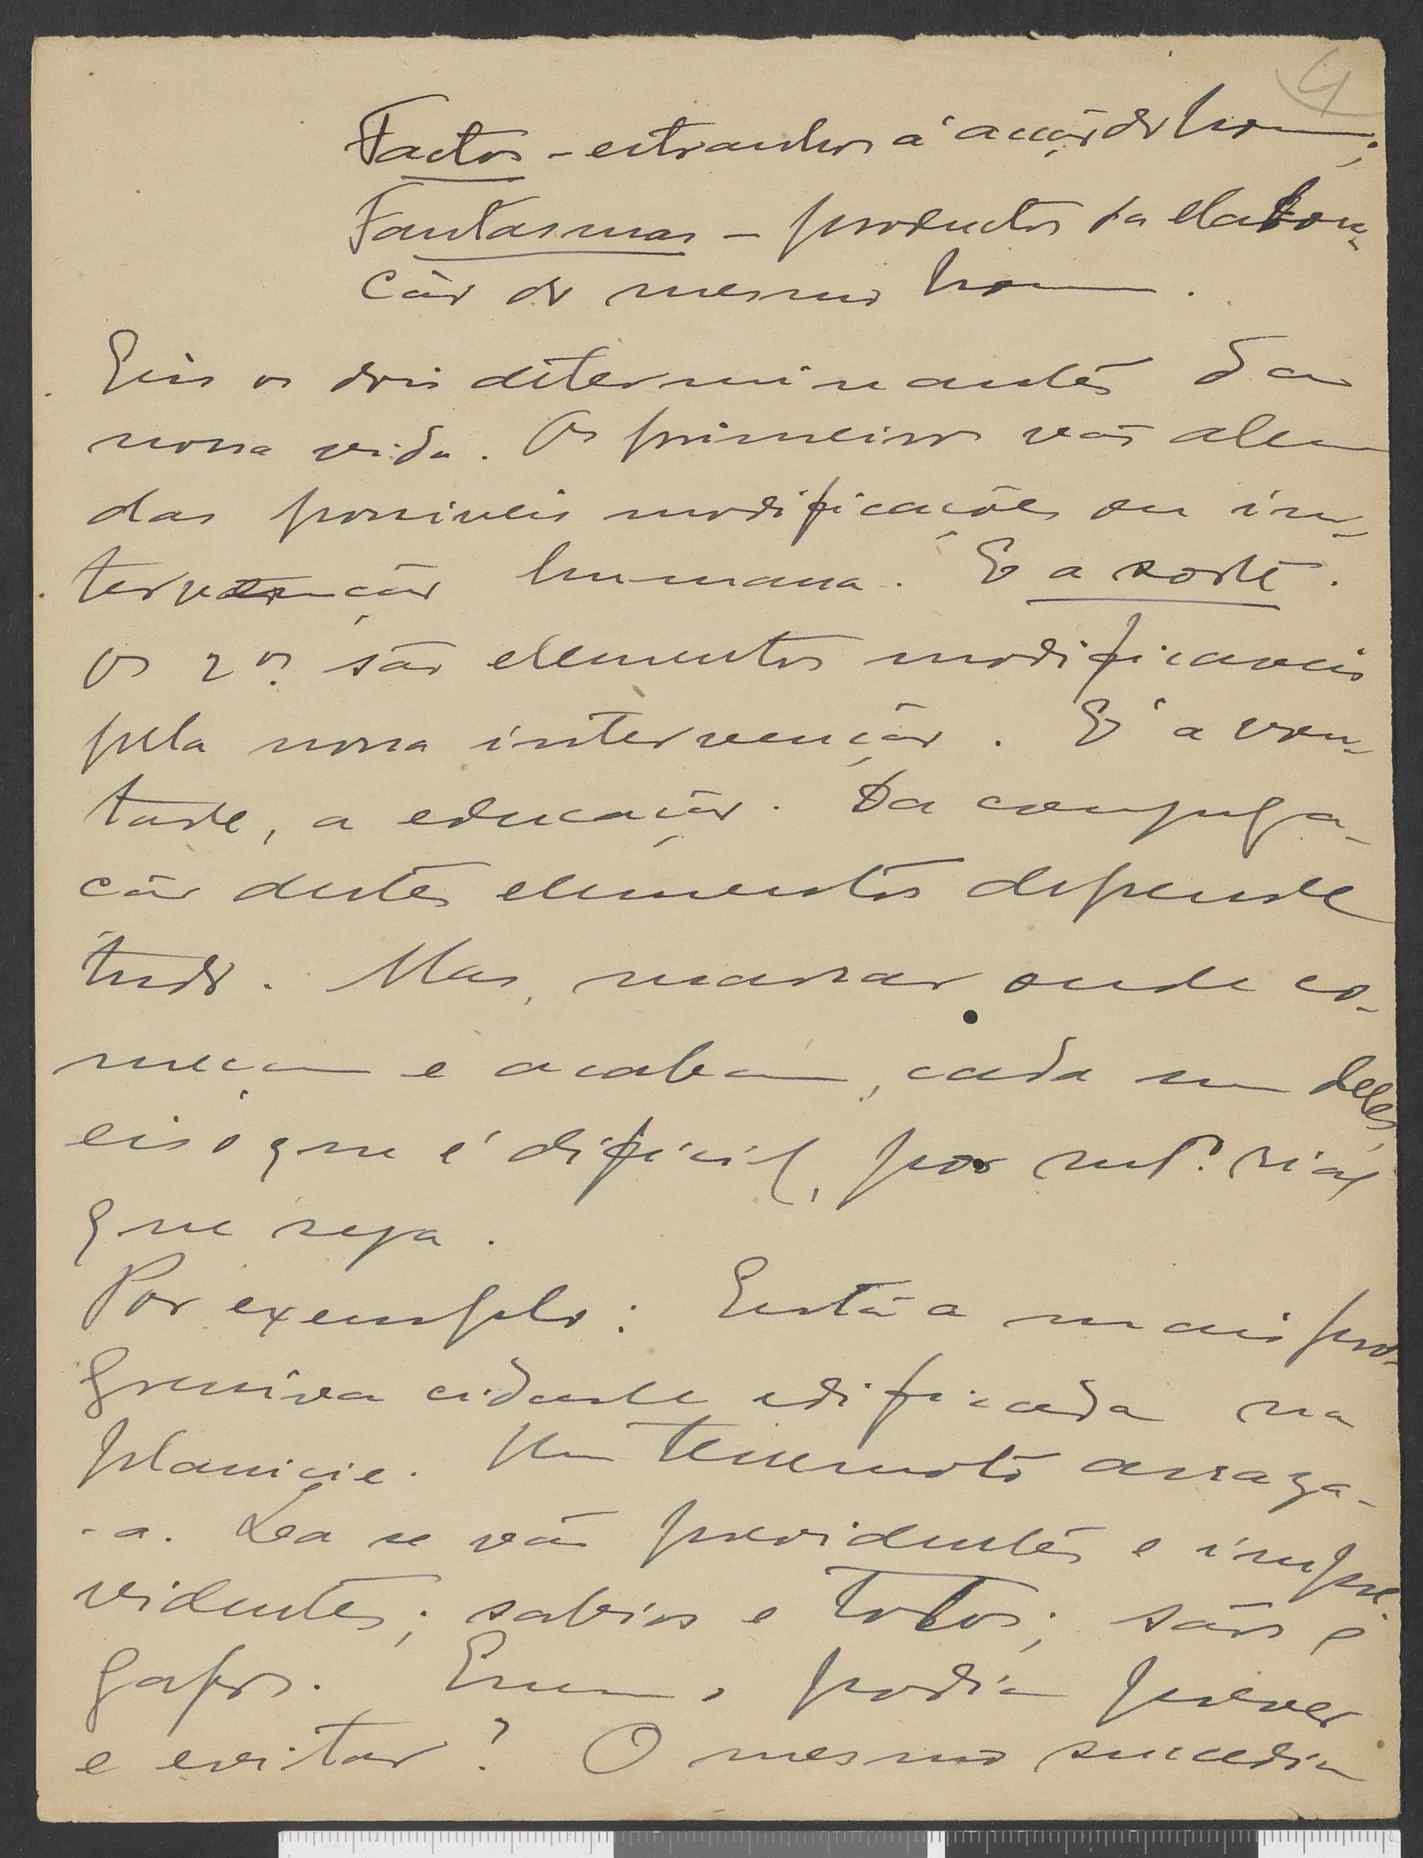 4
Factos - estranhos á acção do homem;
Fantasmas - productos da elabora-
ção do mesmo homem.
Eis os dois determinantes da
nossa vida. Os primeiros vão alem
das possiveis modificações ou in-
tervenção humana. É a sorte.
Os 2os. são elementos modificaveis
pela nossa intervenção. É a von-
tade, a educação. Da conjuga-
ção destes elementos depende
tudo. Mas, marcar onde co-
meçam e acabam, cada um deles,
eis o que é dificil, por
que seja.
Por exemplo: Está a mais pro-
gressiva cidade edificada na
planicie. Um terremoto arraza-
-a. La se vão previdentes e impre-
videntes; sabios e tolos; sãos e
gafos. Quem o podia prever
e evitar? O mesmo sucedia